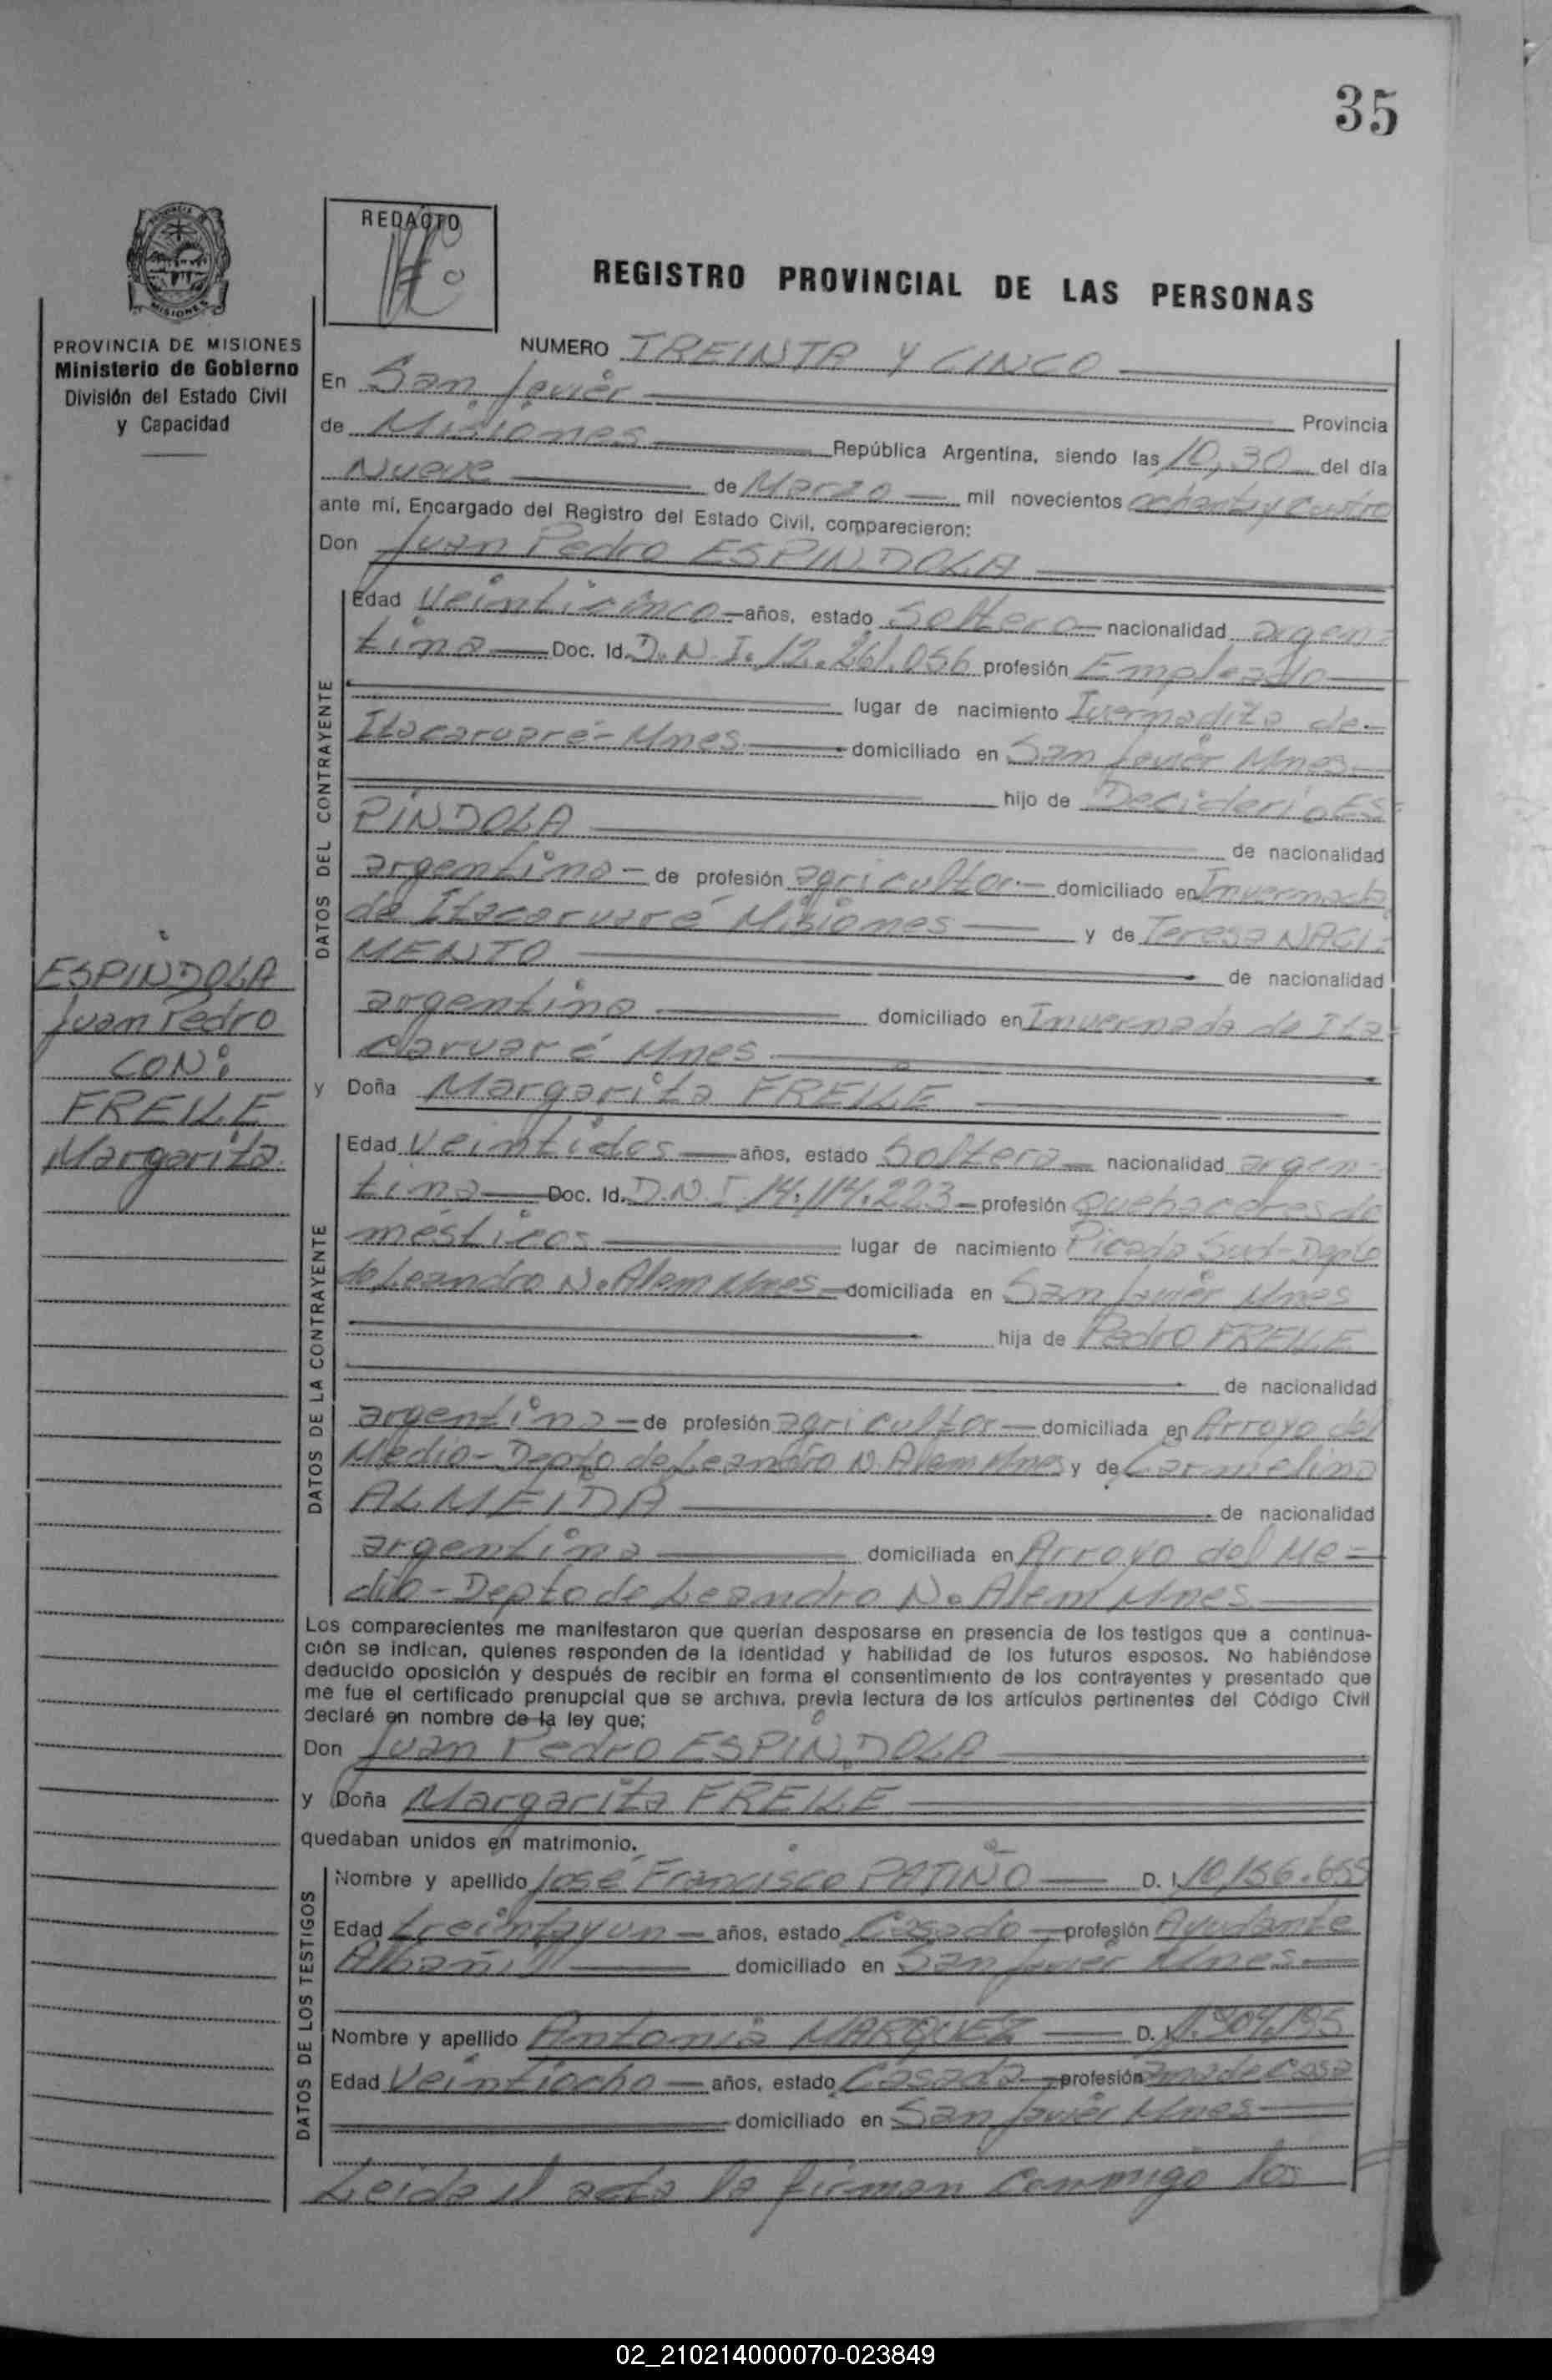 35
REDACTO
REGISTRO PROVINCIAL DE LAS PERSONAS
PROVINCIA DE MISIONES
Ministerio de Gobierno
División del Estado Civil
y Capacidad
NUMERO TREINTA Y CINCO
En San Javier Provincia
de Misiones República Argentina, siendo las 10,30 del día
Nueve de Marzo mil novecientos ochenta y cuatro
ante mí, Encargado del Registro del Estado Civil, comparecieron:
Don Juan Pedro ESPINDOLA
DATOS DEL CONTRAYENTE
Edad Veinticinco años, estado Soltero nacionalidad argen-
tina Doc. Id. D.N.I. 12.261.056 profesión Empleado
lugar de nacimiento Ivernadita de
Itacaruaré-Mnes domiciliado en San Javier Mnes
hijo de Deciderio ES-
PINDOLA de nacionalidad
argentina de profesión agricultor domiciliado en Invernada
de Itacaruaré Misiones y de Teresa NACI-
MENTO de nacionalidad
argentina domiciliado en Invernada de Ita-
caruaré Mnes
ESPINDOLA
Juan Pedro
CON:
FREILE
Margarita
y Doña Margarita FREILE
DATOS DE LA CONTRAYENTE
Edad Veintidos años, estado Soltera nacionalidad argen-
tina Doc. Id. D.N.I 14.114.223 profesión quehaceres do
mésticos lugar de nacimiento Picada Sud-Depto
de Leandro N. Alem Mnes domiciliada en San Javier Mnes
hija de Pedro FREILE
de nacionalidad
argentina de profesión agricultor domiciliada en Arroyo del
Medio-Depto de Leandro N. Alem Mnes y de Carmelina
ALMEIDA de nacionalidad
argentina domiciliada en Arroyo del Me-
dio-Depto de Leandro N. Alem Mnes
Los comparecientes me manifestaron que querían desposarse en presencia de los testigos que a continua-
ción se indican, quienes responden de la identidad y habilidad de los futuros esposos. No habiéndose
deducido oposición y después de recibir en forma el consentimiento de los contrayentes y presentado que
me fue el certificado prenupcial que se archiva, previa lectura de los artículos pertinentes del Código Civil
declaré en nombre de la ley que;
Don Juan Pedro ESPINDOLA
y Doña Margarita FREILE
quedaban unidos en matrimonio.
DATOS DE LOS TESTIGOS
Nombre y apellido José Francisco PATIÑO D. I. 10,156.655
Edad treintayun años, estado Casado profesión Ayudante
Albañil domiciliado en San Javier Mnes
Nombre y apellido Antonia MARQUEZ D. I.
Edad Veintiocho años, estado Casada profesión ama de casa
domiciliado en San Javier Mnes
Leida el acta la firman conmigo los
02_210214000070-023849